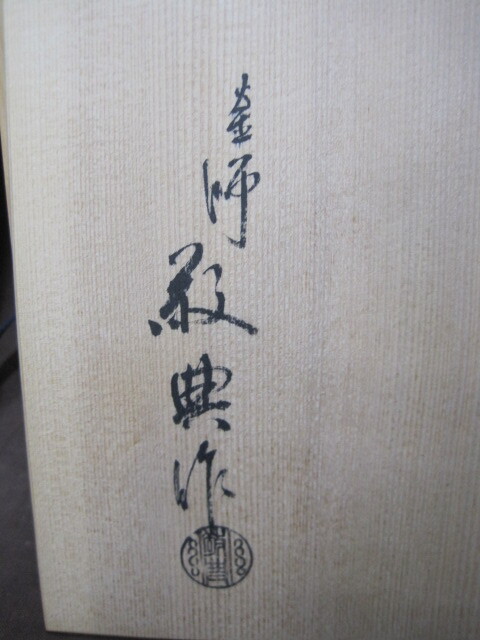 釜師
敬典作